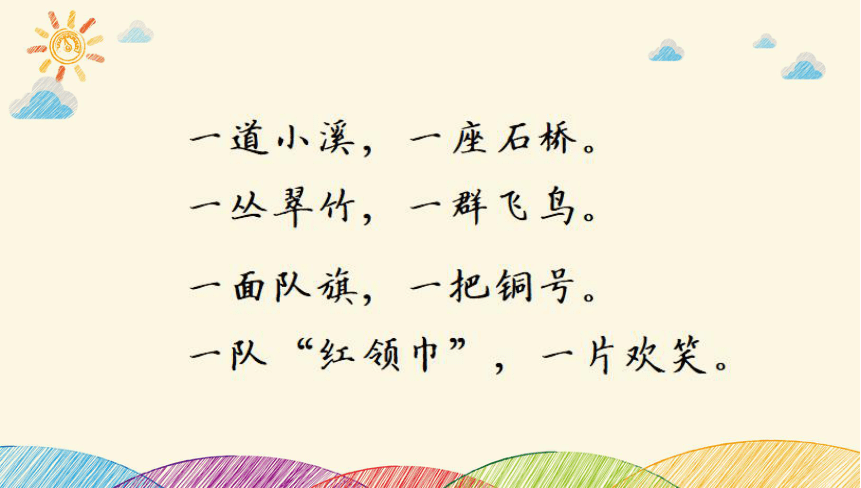 一道小溪，一座石桥。
一丛翠竹，一群飞鸟。
一面队旗，一把铜号。
一队“红领巾”，一片欢笑。